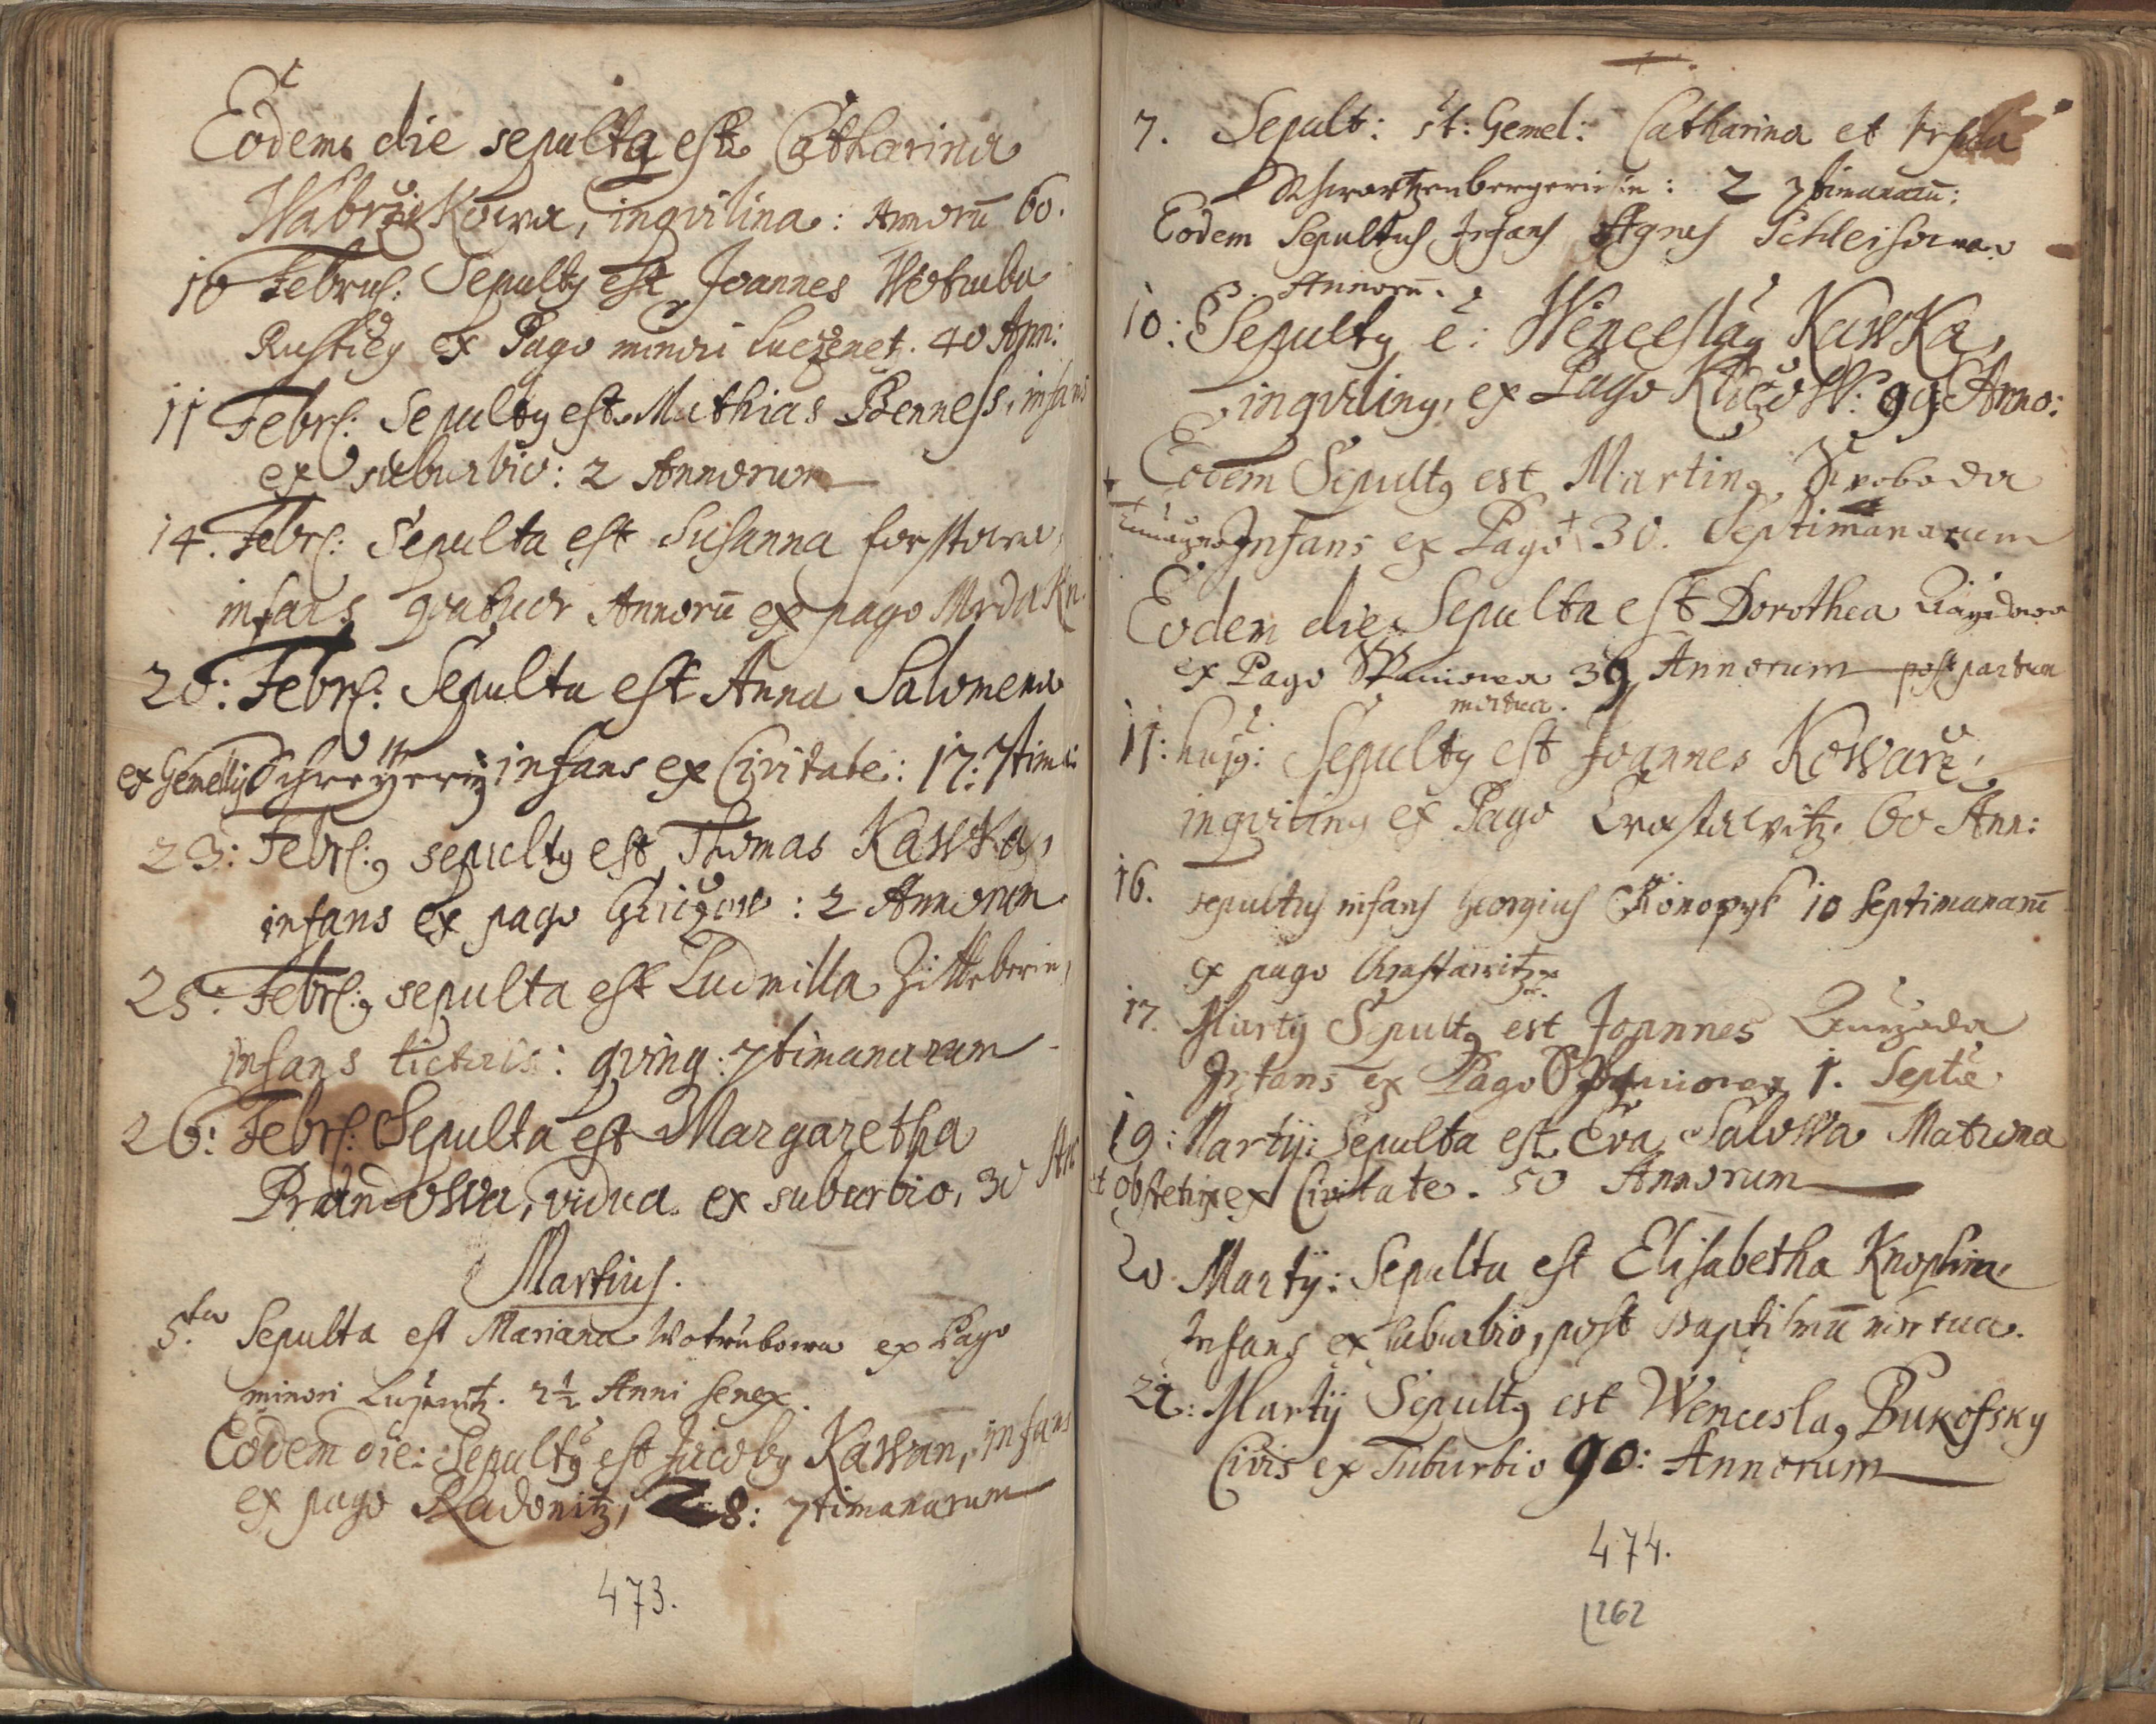 Eodem die sepulta est Catharina
Wabržikowa, inqvilina: Annorū 60.
10 Febru: Sepultq est Joannes Wotruba
Rusticq ex Pago minori Luczenetz. 40 Ann:
11 Febr: Sepultq est Mathias Benness, infans
ex suburbio: 2 Annorum
14. Febr: Sepulta est Susanna forstowa,
infans qvatuor Annorū ex pago Mrdak
20: Febr: Sepulta est Anna Salomena
ex Gemellis Schreÿerin infans ex Civitate: 17: 7tim:
23: Febr: sepultq est Thomas Kawka,
infans ex pago : 2 Annorum
25: Febr: sepulta est Ludmilla Zitteberin,
infans lictoris: qvinq: 7timanarum
26: Febr: Sepulta est Margaretha
Brandowa, vidua ex suburbio, 30 An
Martius.
5.ta Sepulta est Mariana Wotrubowa ex Pago
minori 2½ Anni senex.
Eodem die: Sepultq est Jacobq Kawan, infans
ex pago Radonitz, 28: 7timanarum
473.
7. Sepult: st: Gemel: Catharina et
Schwartzenbergerin: 2 7timanarū:
Eodem Sepultus Infans Agnes Schleisowa
3. Annorū.
10: Sepultq ē: Wenceslaq Kawka,
inqvilinq, ex Pago 99 Anno:
Eodem Sepultq est Martinq Swoboda
Infans ex Pago + 30. Septimanarum
Eodem die Sepulta est Dorothea
ex Pago 39 Annorum post partum
mortua.
11: hujq: Sepultq est Joannes Kowarž,
inqvilinq ex Pago Crastawitz. 60 Ann:
16. sepultus infans Georgius Konopys 10 Septimanarū
ex pago Chrastawitz.
17. Martij Sepultq est Joannes
Infans ex Pago 1. Septi
19: Martij: Sepulta est Eva Salowa Matrona
et obstetrix ex Civitate. 50 Annorum
20 Martij: Sepulta est Elisabetha Knoplin
Infans ex suburbio, post Baptismū mortua.
22: Martij Sepultq est Wenceslaq Bukofsky
Civis ex Suburbio 90: Annorum
474.
262